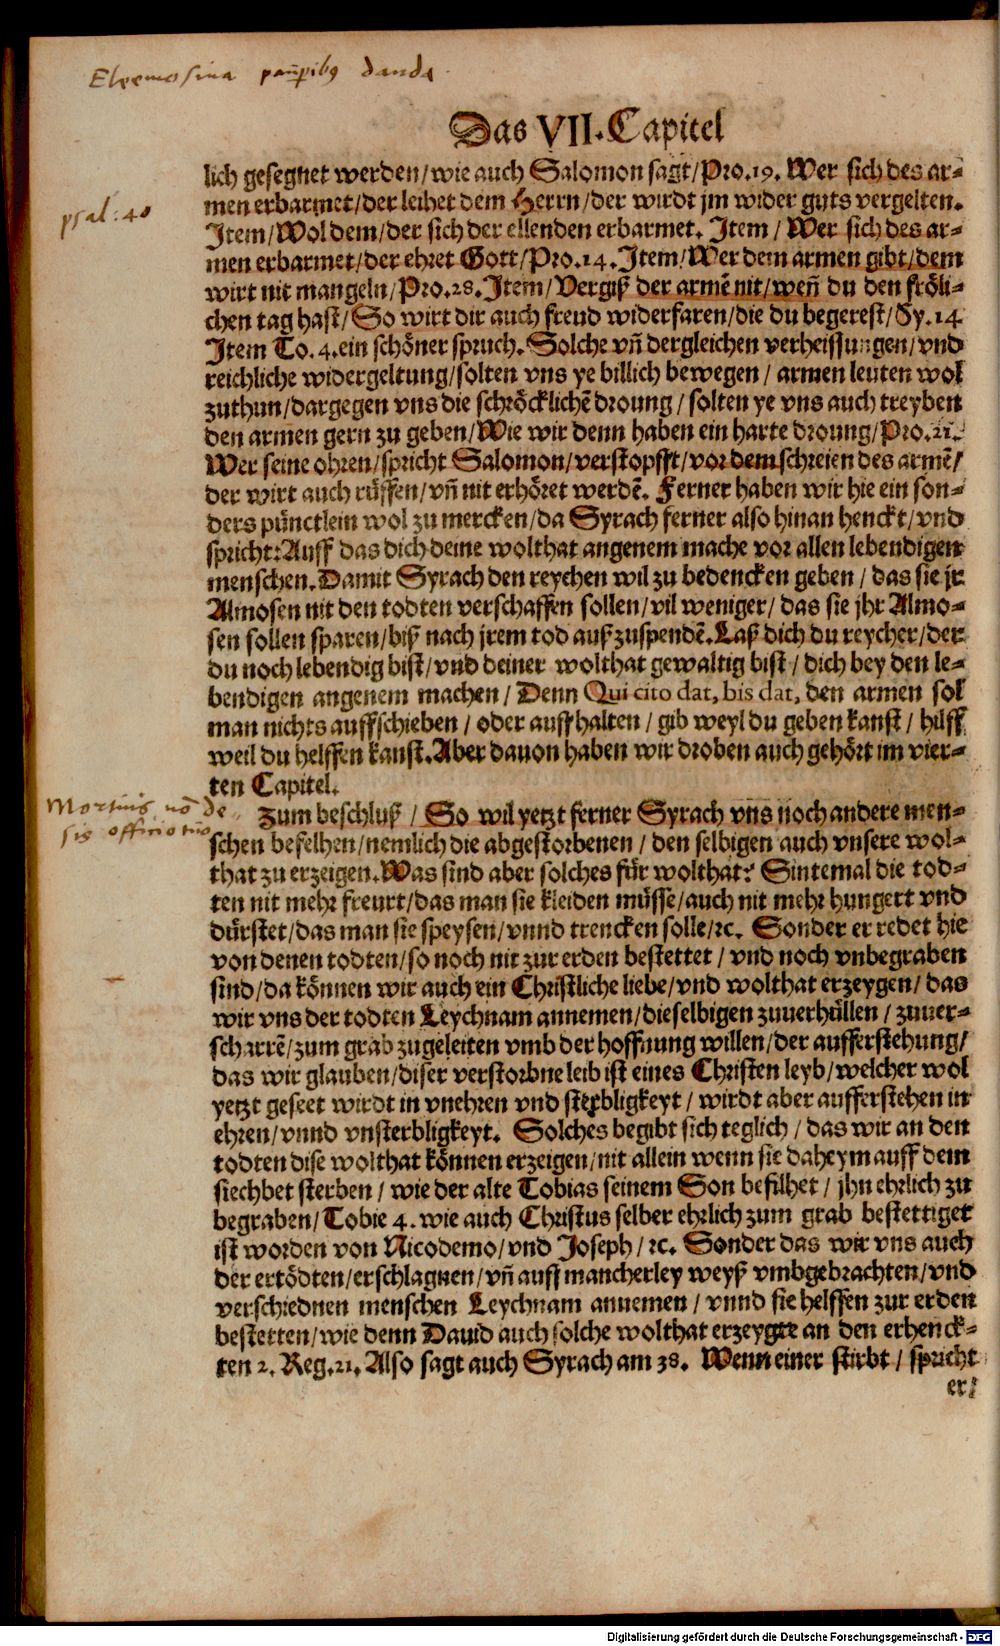 Eleemosina paup̄ibꝰ danda
Das VII. Capitel
lich gesegnet werden/wie auch Salomon sagt/Pro.19. Wer sich des ar-
psal: 40
men erbarmet/der leihet dem Herrn/der wirdt jm wider guts vergelten.
Item/Wol dem/der sich der ellenden erbarmet. Item/ Wer sich des ar-
men erbarmet/der ehret Gott/Pro.14. Item/Wer dem armen gibt/dem
wirt nit mangeln/Pro.28. Item/Vergiß der armē nit/weñ du den fröli-
chen tag hast/So wirt dir auch freud widerfaren/die du begerest/Sy.14
Item To.4.ein schöner spruch. Solche vñ dergleichen verheissungen/vnd
reichliche widergeltung/solten vns ye billich bewegen/ armen leuten wol
zuthun/dargegen vns die schröcklichē droung/ solten ye vns auch treyben
den armen gern zu geben/Wie wir denn haben ein harte droung/Pro.21.
Wer seine ohren/spricht Salomon/verstopfft/vor dem schreien des armē/
der wirt auch rüffen/vñ nit erhöret werdē. Ferner haben wir hie ein son-
ders pünctlein wol zu mercken/da Syrach ferner also hinan henckt/vnd
spricht: Auff das dich deine wolthat angenem mache vor allen lebendigen
menschen. Damit Syrach den reychen wil zu bedencken geben/ das sie jr
Almosen nit den todten verschaffen sollen/vil weniger/ das sie jhr Almo-
sen sollen sparen/biß nach jrem tod außzuspendē. Laß dich du reycher/der
du noch lebendig bist/vnd deiner wolthat gewaltig bist/ dich bey den le-
bendigen angenem machen/ Denn Qui cito dat, bis dat, den armen sol
man nichts auffschieben/ oder auffhalten/ gib weyl du geben kanst/ hilff
weil du helffen kanst. Aber dauon haben wir droben auch gehört im vier-
ten Capitel.
Mortuis nō de
sis officio tuo
Zum beschluß/ So wil yetzt ferner Syrach vns noch andere men-
schen befelhen/nemlich die abgestorbenen/ den selbigen auch vnsere wol-
that zu erzeigen. Was sind aber solches für wolthat? Sintemal die tod-
ten nit mehr freurt/das man sie kleiden müsse/auch nit mehr hungert vnd
dürstet/das man sie speysen/vnnd trencken solle/ꝛc. Sonder er redet hie
von denen todten/so noch nit zur erden bestettet/ vnd noch vnbegraben
sind/da können wir auch ein Christliche liebe/vnd wolthat erzeygen/ das
wir vns der todten Leychnam annemen/dieselbigen zuuerhüllen/ zuuer-
scharrē/zum grab zugeleiten vmb der hoffnung willen/der aufferstehung/
das wir glauben/diser verstorbne leib ist eines Christen leyb/welcher wol
yetzt geseet wirdt in vnehren vnd sterbligkeyt/ wirdt aber aufferstehen in
ehren/vnnd vnsterbligkeyt. Solches begibt sich teglich/ das wir an den
todten dise wolthat können erzeigen/nit allein wenn sie daheym auff dem
siechbet sterben/ wie der alte Tobias seinem Son befilhet/ jhn ehrlich zu
begraben/Tobie 4. wie auch Christus selber ehrlich zum grab bestettiget
ist worden von Nicodemo/vnd Joseph/ꝛc. Sonder das wir vns auch
der ertödten/erschlagnen/vñ auff mancherley weyß vmbgebrachten/vnd
verschiednen menschen Leychnam annemen/ vnnd sie helffen zur erden
bestetten/wie denn Dauid auch solche wolthat erzeygte an den erhenck-
ten 2. Reg.21. Also sagt auch Syrach am 38. Wenn einer stirbt/ spricht
er/
Digitalisierung gefördert durch die Deutsche Forschungsgemeinschaft - DFG